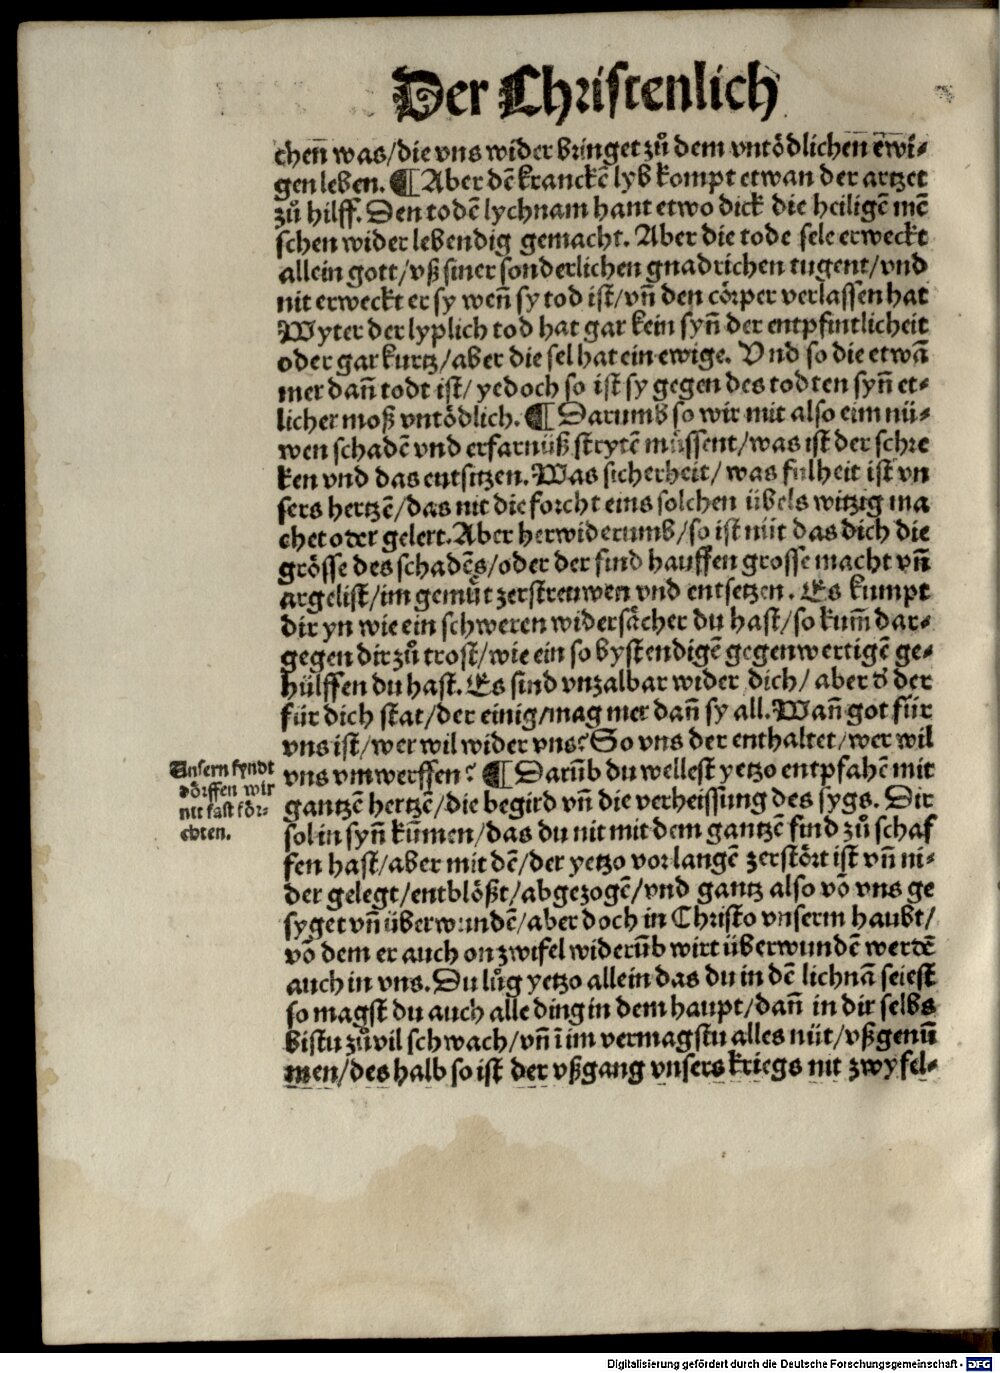 Der Christenlich
chen̄ was/die vns wider bringet zů dem vntödlichen ewi-
gen leben. ¶ Aber dē kranckē lyb kompt etwan der artzet
zů hilff. Den todē lychnam hant etwo dick die heiligē mē
schen wider lebendig gemacht. Aber die tode sele erweckt
allein gott/vß siner sonderlichen gnadrichen tugent/vnd
nit erweckt er sy wen̄ sy tod ist/vn̄ den cörper verlassen hat
Wyter der lyplich tod hat gar kein syn̄ der entpfintlicheit
oder gar kurtz/aber die sel hat ein ewige. Vnd so die etwā
mer dan̄ todt ist/ yedoch so ist sy gegen des todten syn̄ et-
licher moß vntödlich. ¶ Darumb so wir mit also eim nü-
wen schadē vnd erfarnüß strytē müssent/was ist der schre
ken vnd das entsitzen. Was sicherheit/ was fulheit ist vn
sers hertzē/das nit die forcht eins solchen übels witzig ma
chet oder gelert. Aber herwiderumb/so ist nüt das dich die
grösse des schadēs/oder der find hauffen grosse macht vn̄
argelist/im gemüt zerstreuwen vnd entsetzen. Es kumpt
dir yn wie ein schweren widersächer du hast/so kum̄ dar-
gegen dir zů trost/wie ein so bystendigē gegenwertigē ge-
hülffen du hast. Es sind vnzalbar wider dich/ aber d' der
für dich stat/der einig/mag mer dan̄ sy all. Wan̄ got für
vns ist/wer wil wider vns? So vns der enthaltet/wer wil
Unsern fyndt
dörffen wir
nit fast för-
chten.
vns vmwerffen? ¶ Darūb du wellest yetzo entpfahē mit
gantzē hertzē/die begird vn̄ die verheissung des sygs. Dir
sol in syn̄ kum̄en/das du nit mit dem gantzē find zů schaf
fen hast/aber mit dē/der yetzo vor langē zerstört ist vn̄ ni-
der gelegt/entblößt/abgezogē/vnd gantz also vō vns ge
syget vn̄ überwundē/aber doch in Christo vnserm haubt/
vō dem er auch on zwifel widerūb wirt überwundē werdē
auch in vns. Du lůg yetzo allein das du in dē lichnā seiest
so magst du auch alle ding in dem haupt/dan̄ in dir selbs
bistu zůvil schwach/vn̄ ī im vermagstu alles nüt/vßgenū
men/des halb so ist der vßgang vnsers kriegs nit zwyfel-
Digitalisierung gefördert durch die Deutsche Forschungsgemeinschaft - DFG